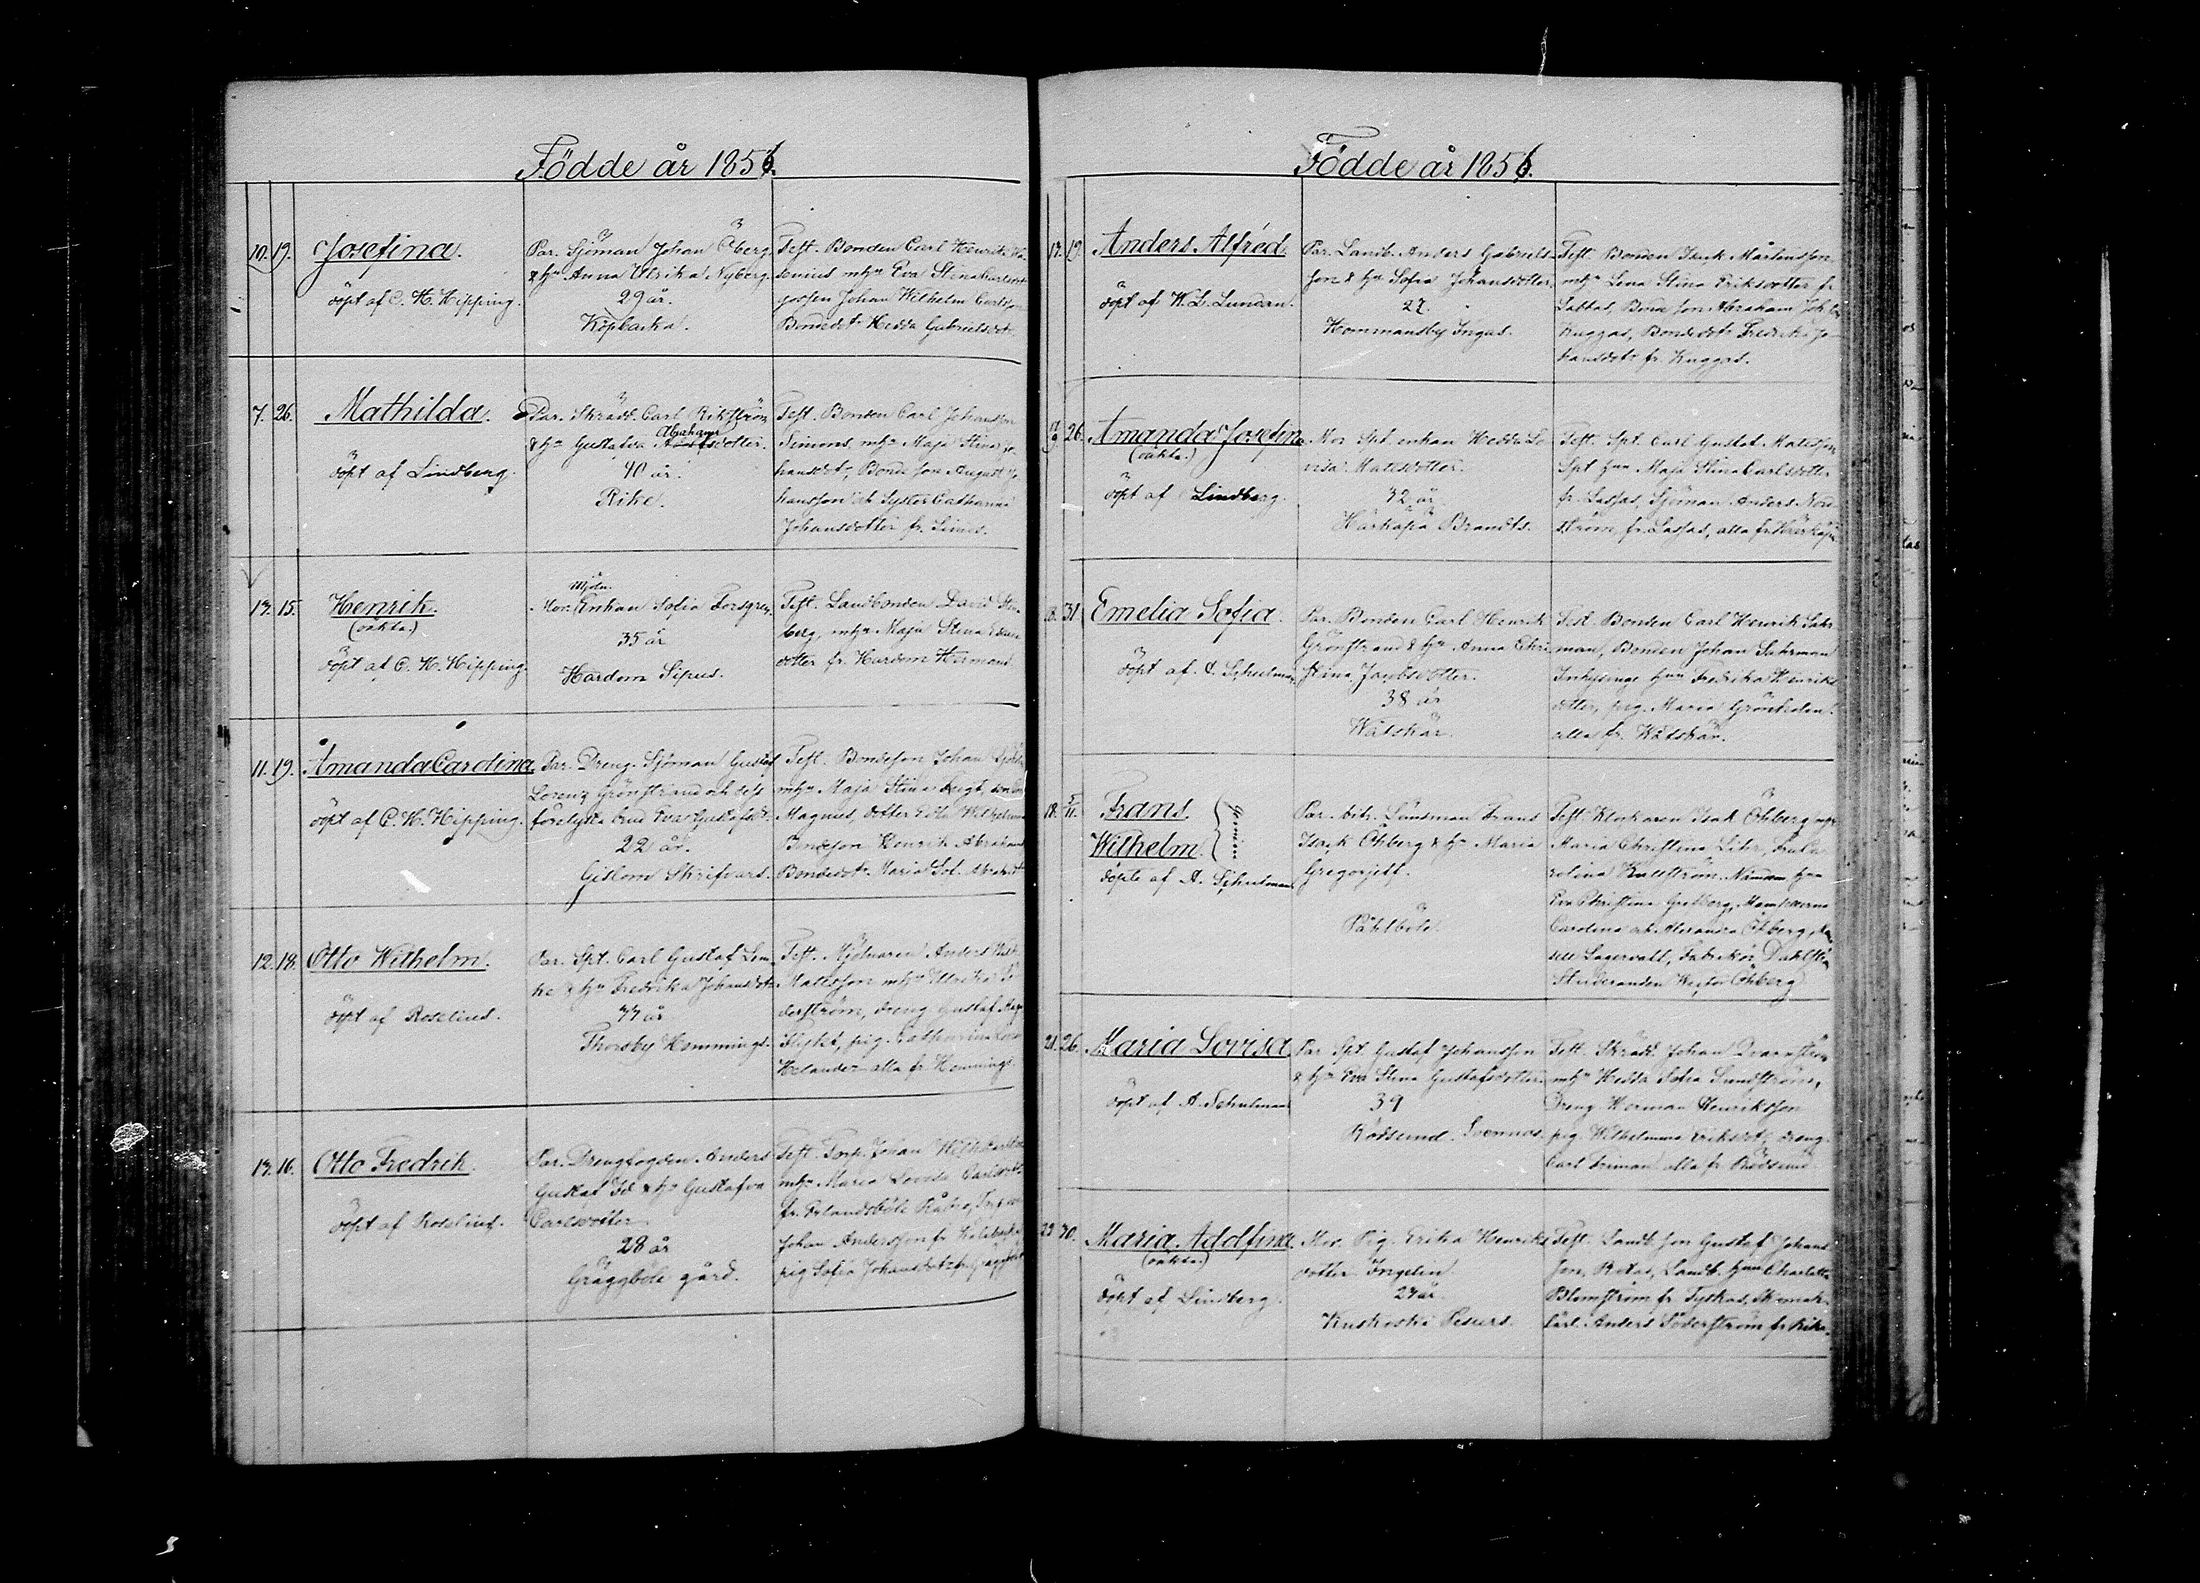 Födde år 1856.
10. 19. Josefina.
döpt af C. H. Hipping.
Par. Sjöman Johan Öberg
& hu Anna Ulrika Nyberg.
29 år.
Köpbacka.
Test. Bonden Carl Henrik
mhu Eva Stina Carlsdotr
gossen Johan Wilhelm Carlsson
Bondedotr Hedda Gabrielsdotr
7. 26. Mathilda.
döpt af Lindberg.
Par. Skrädd. Carl Rikström
& hu Gustafva Abrahamsdotter.
40 år.
Rike.
Test. Bonden Carl Johansson
Simons, mhu Maja Stina Jo-
hansdotr, Bonde son August Jo-
hansson och Syster Catharina
Johansdotter fr. Simos.
13. 15. Henrik.
(oäkta.)
döpt af C. H. Hipping.
Mor. Mjöln. Enkan Sofia Forsgren
35 år
Hardom Sipus.
Test. Landbonden David Sten-
berg, mhu Maja Stina
dotter fr. Hardom
11. 19. Amanda Carolina
döpt af C. H. Hipping.
Par. Dreng. Sjöman Gustaf
Lorenz Grönstrand och dess
förelysta brud Eva Gustafsdr.
22 år.
Gislom Skrifvars.
Test. Bondeson Johan
mhu Maja Stina
Magnus, dotter Edla Wilhelmina
Bondeson Henrik Abrahams
Bondedotr Maria Sof.
12. 18. Otto Wilhelm.
döpt af Roselind.
Par. Spt. Carl Gustaf Lin-
ke & hu Fredrika Johansdotr
33 år
Thorsby Hemmings.
Test. Mjölnaren Anders
Mattsson mhu Ulrika
derström, dreng Gustaf
Flykt, pig. Catharina
Helander alla fr. Hemmings.
13. 16. Otto Fredrik.
döpt af Roselind.
Par. Drengfogden Anders
Gustaf & hu Gustafva
Carlsdotter
28 år
Gräggböle gård.
Test. Torp. Johan Wilh.
mhu Maria Lovisa Carlsdotr
fr. Erlandsböle
Johan Andersson fr.
pig Sofia Johansdotr fr.
Födde år 1856.
13. 19. Anders Alfréd.
döpt af W. L. Lundan.
Par. Landb. Anders Gabriels-
son & hu Sofia Johansdotter.
27.
Hommansby Ingas.
Test. Bonden Isack Mårtensson
mhu Lena Stina Eriksdotter fr.
Labbas, Bonde son Abraham Joh.
Kuggas, Bondedotr Fredrika Jo-
hansdotr fr. Kuggas.
26. Amanda Josefina
(oäkta.)
döpt af Lindberg.
Mor Spt. enkan Hedda Lo-
visa Matsdotter.
32 år
Härkäpä Brandts.
Test. Spt. Carl Gustaf Mattsson
Spt hun Maja Stina Carlsdotter
fr. Lassas, Sjöman Anders Nord-
ström, fr. Lassas, alla fr. Härkäpä
18. 31. Emelia Sofia.
döpt af A. Schulman
Par. Bonden Carl Henrik
Grönstrand & hu Anna Chri-
stina Jacobsdotter.
38 år
Wåtskär.
Test. Bonden Carl Henrik Suhr-
man, Bonden Johan Suhrman
Inhysinge hun Fredrika Henriks-
dotter, pig. Maria
alla fr. Wåtskär.
18. 5/11. Frans.
Wilhelm.
döpte af A. Schulman
Par. bitr. Länsman Frans
Isack Öhberg & hu Maria
Gregorjeff.
Påhlböle.
Test. Klockaren Isak Öhberg
Maria Christina
rolina Nämdem. hun
Eva Christina
Carolina och Alexandra Öhberg,
sell Lagervall, Fabrikör Dahlström
Studeranden Wictor Öhberg
21. 26. Maria Lovisa
döpt af A. Schulman
Par. Spt. Gustaf Johansson
& hu Eva Stina Gustafsdotter
39
Rödsund. Svennas.
Test. Skrädd. Johan Qvarnström
mhu Hedda Sofia Sundström,
Dreng Herman Henriksson
pig. Wilhelmina Eriksdotr, dreng.
Carl Friman alla fr. Rödsund
23. 30. Maria Adolfina
(oäkta.)
döpt af Lindberg.
Mor. Pig. Erika Henriks-
dotter Ingelin
23 år.
Kuskoski Pesurs.
Test. Landb. son Gustaf Johans-
son, Landb. hun Charlotta
Blomström fr. Tyskas, Skomak-
lärl. Anders Söderström fr. Rike.